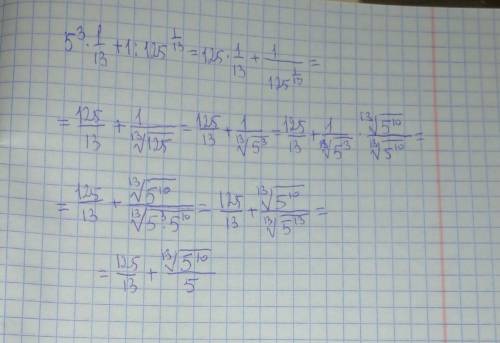 5³ · 1/13 + 1 : 125^(1/13) = 125 · 1/13 + 1/125^(1/13) =
= 125/13 + 1/¹³√125 = 125/13 + 1/¹³√5³ = 125/13 + 1/¹³√5³ · ¹³√5¹⁰/¹³√5¹⁰ =
= 125/13 + ¹³√5¹⁰/¹³√5³·5¹⁰ = 125/13 + ¹³√5¹⁰/¹³√5¹³ =
= 125/13 + ¹³√5¹⁰/5